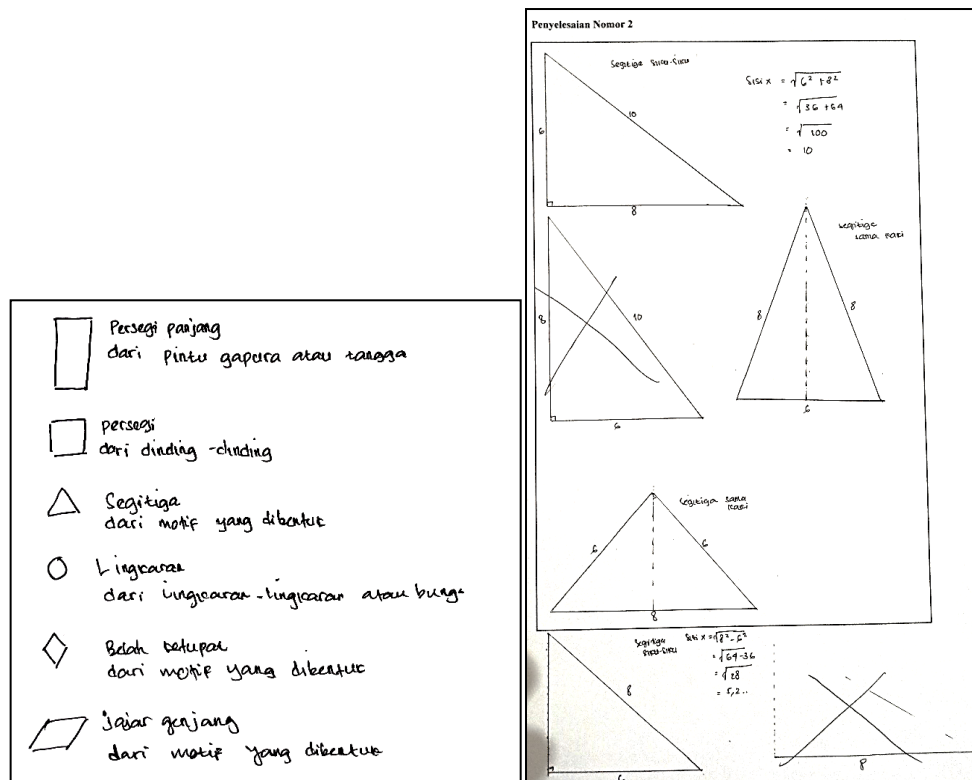 Persegi panjang
dari pintu gapura atau tangga
persegi
dari dinding -dinding
Segitiga
dari motif yang dibentuk
Lingkaran
dari lingkaran-lingkaran atau bunga
Belah ketupat
dari motif yang dibentuk
jajar genjang
dari motif yang dibentuk
Penyelesaian Nomor 2
Segitiga siku-siku
6
10
8
Sisi x = √6² + 8²
= √36 + 64
= √100
= 10
8
10
6
segitiga
sama kaki
8
8
6
segitiga sama
kaki
6
6
8
segitiga
siku-siku
8
6
sisi x = √8² - 6²
= √64 - 36
= √28
= 5,2..
8